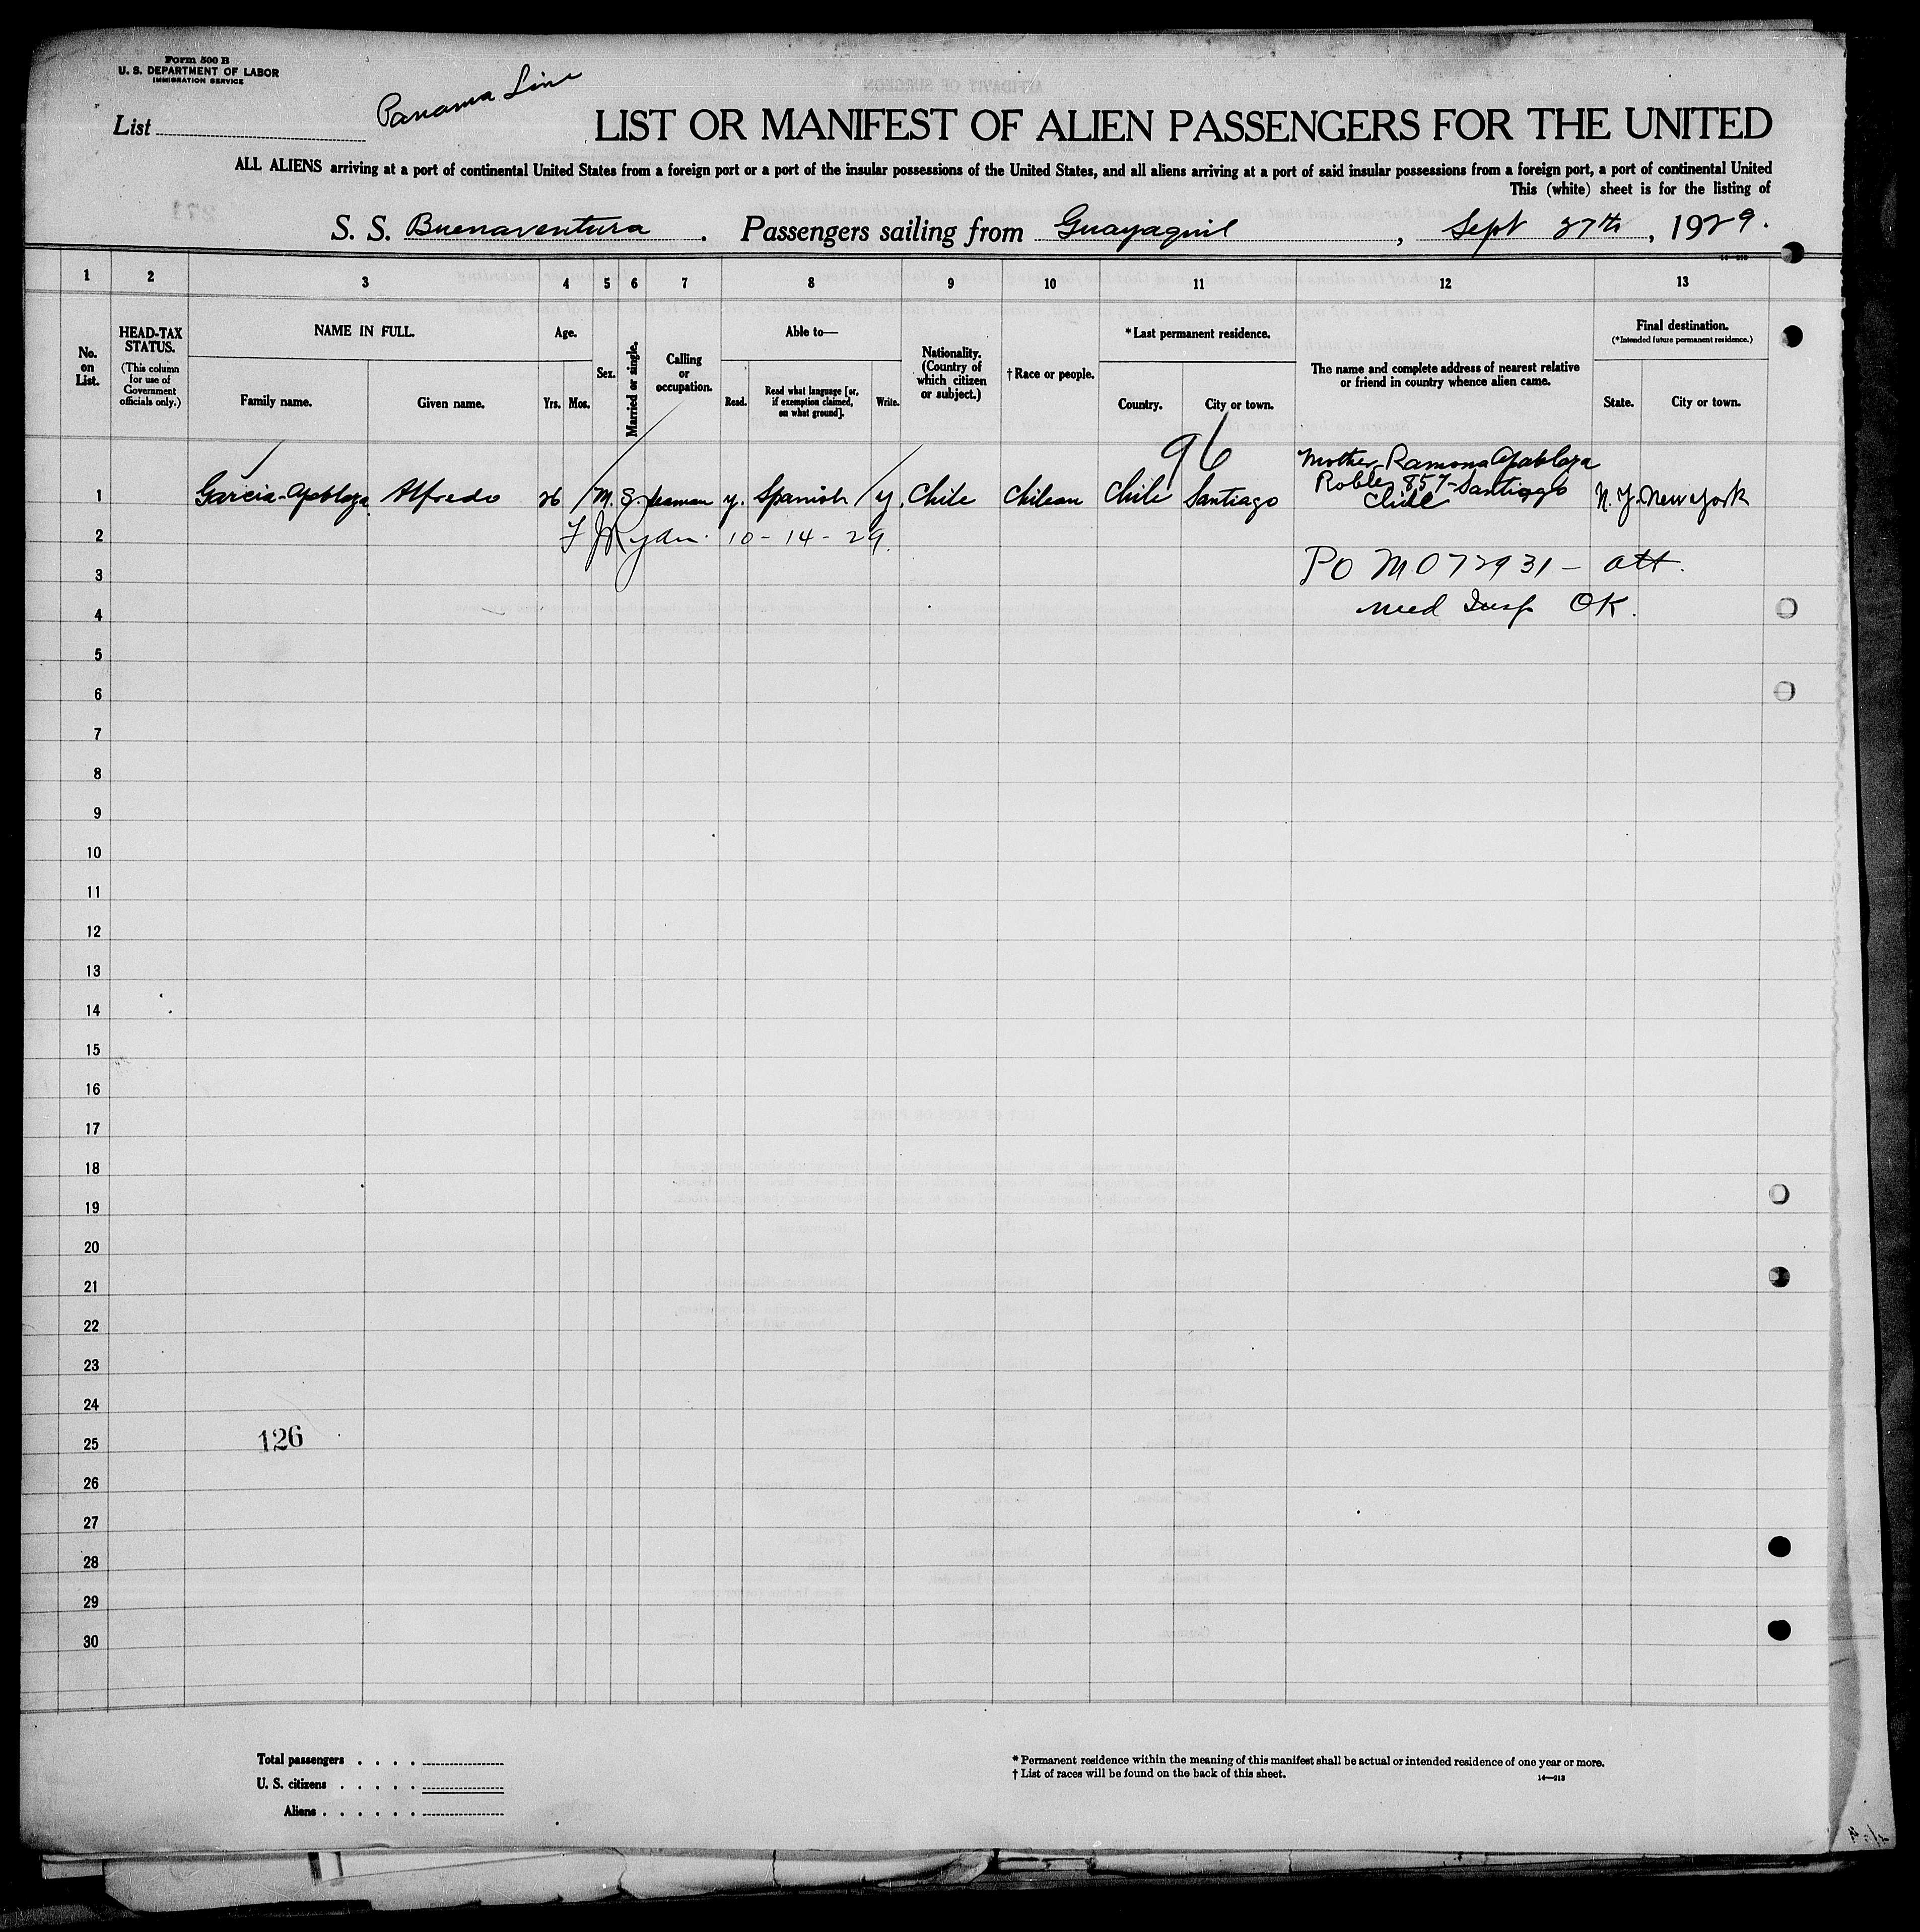 Form 500 B
U. S. DEPARTMENT OF LABOR
IMMIGRATION SERVICE
List
Panama Line
LIST OR MANIFEST OF ALIEN PASSENGERS FOR THE UNITED
ALL ALIENS arriving at a port of continental United States from a foreign port or a port of the insular possessions of the United States, and all aliens arriving at a port of said insular possessions from a foreign port, a port of continental United
This (white) sheet is for the listing of
S. S. Buenaventura. Passengers sailing from Guayaquil, Sept 27th, 1929.
1 2 3 4 5 6 7 8 9 10 11 12 13
No. on List.
HEAD-TAX STATUS.
(This column for use of Government officials only.)
NAME IN FULL.
Family name. Given name.
Age.
Yrs. Mos.
Sex.
Married or single.
Calling or occupation.
Able to—
Read. Read what language [or, if exemption claimed, on what ground]. Write.
Nationality. (Country of which citizen or subject.)
† Race or people.
* Last permanent residence.
Country. City or town.
The name and complete address of nearest relative or friend in country whence alien came.
Final destination.
(* Intended future permanent residence.)
State. City or town.
96
Mother Ramona Apablaza
Robles 857 Santiago
Chile
1 Garcia-Apablaza Alfredo 26 M. S. seaman y. Spanish y. Chile Chilean Chile Santiago N. Y. New York
2 Ryan 10-14-29.
3 PO M 072931 - att.
4 med Insp OK.
5
6
7
8
9
10
11
12
13
14
15
16
17
18
19
20
21
22
23
24
25 126
26
27
28
29
30
Total passengers . . . .
U. S. citizens . . . . .
Aliens . . . . . .
* Permanent residence within the meaning of this manifest shall be actual or intended residence of one year or more.
† List of races will be found on the back of this sheet.
14—213